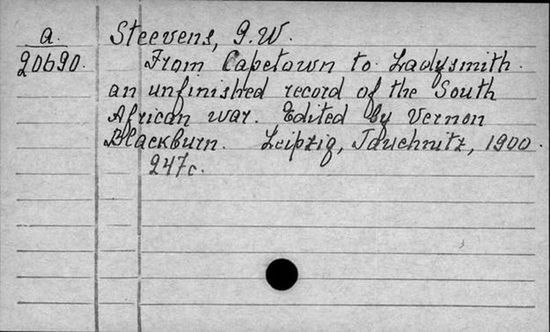 a. Steevens, G.W.
20690. From Capetown to Ladysmith.
an unfinished record of the South
African war. Edited by Vernon
Blackburn. Leipzig, Tauchnitz, 1900.
247c.